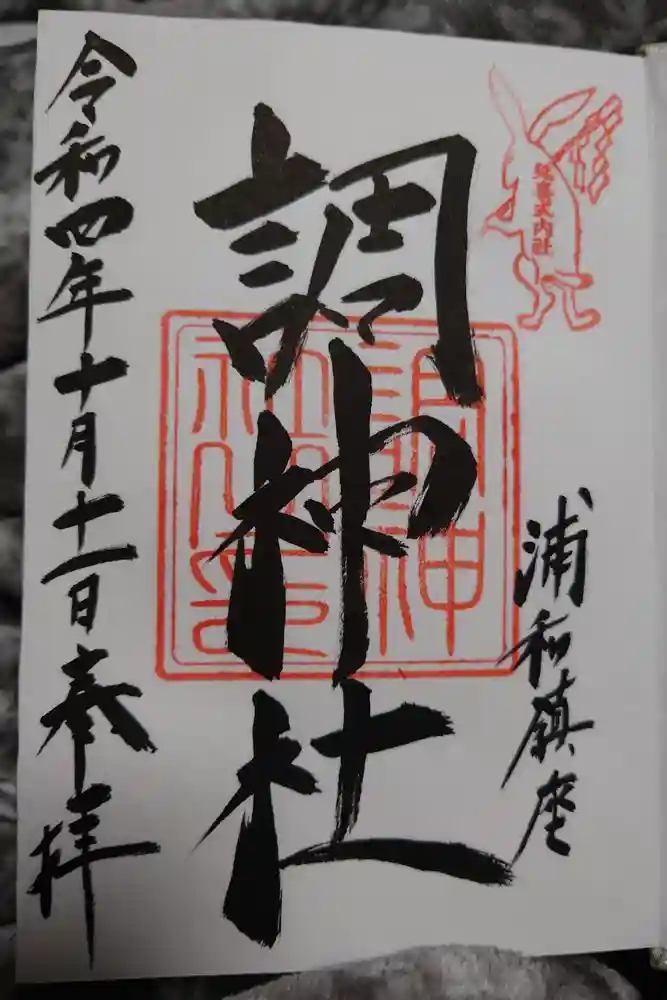 延喜式内社
浦和鎮座
調神社
調神
社之印
令和四年十月十一日奉拝